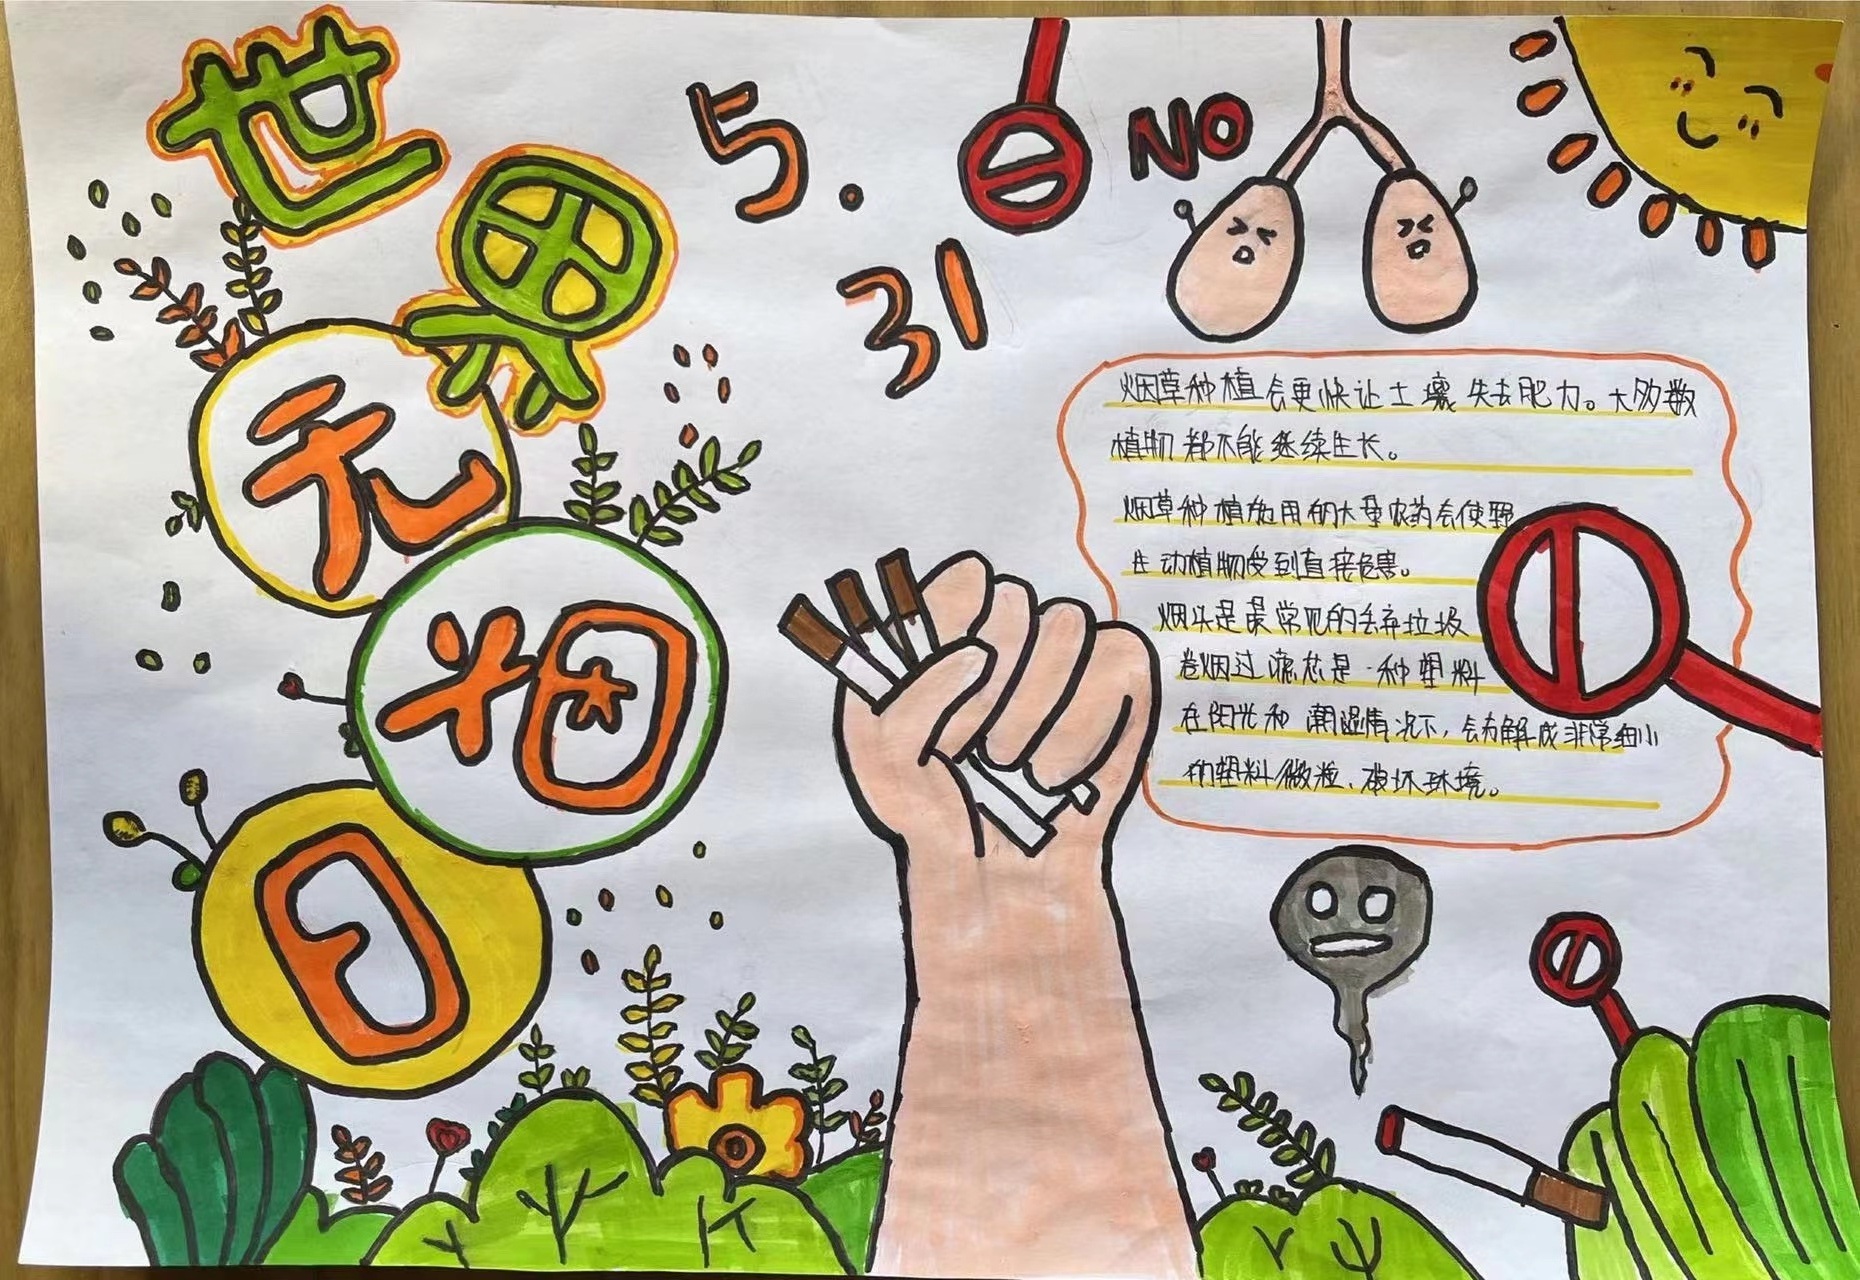 世界
无烟
日
5.
31
NO
烟草种植会更快让土壤失去肥力。大多数
植物都不能继续生长。
烟草种植施用的大量农药会使野
生动植物受到直接危害。
烟头是最常见的丢弃垃圾
卷烟过滤芯是一种塑料
在阳光和潮湿情况下，会分解成非常细小
的塑料微粒、破坏环境。